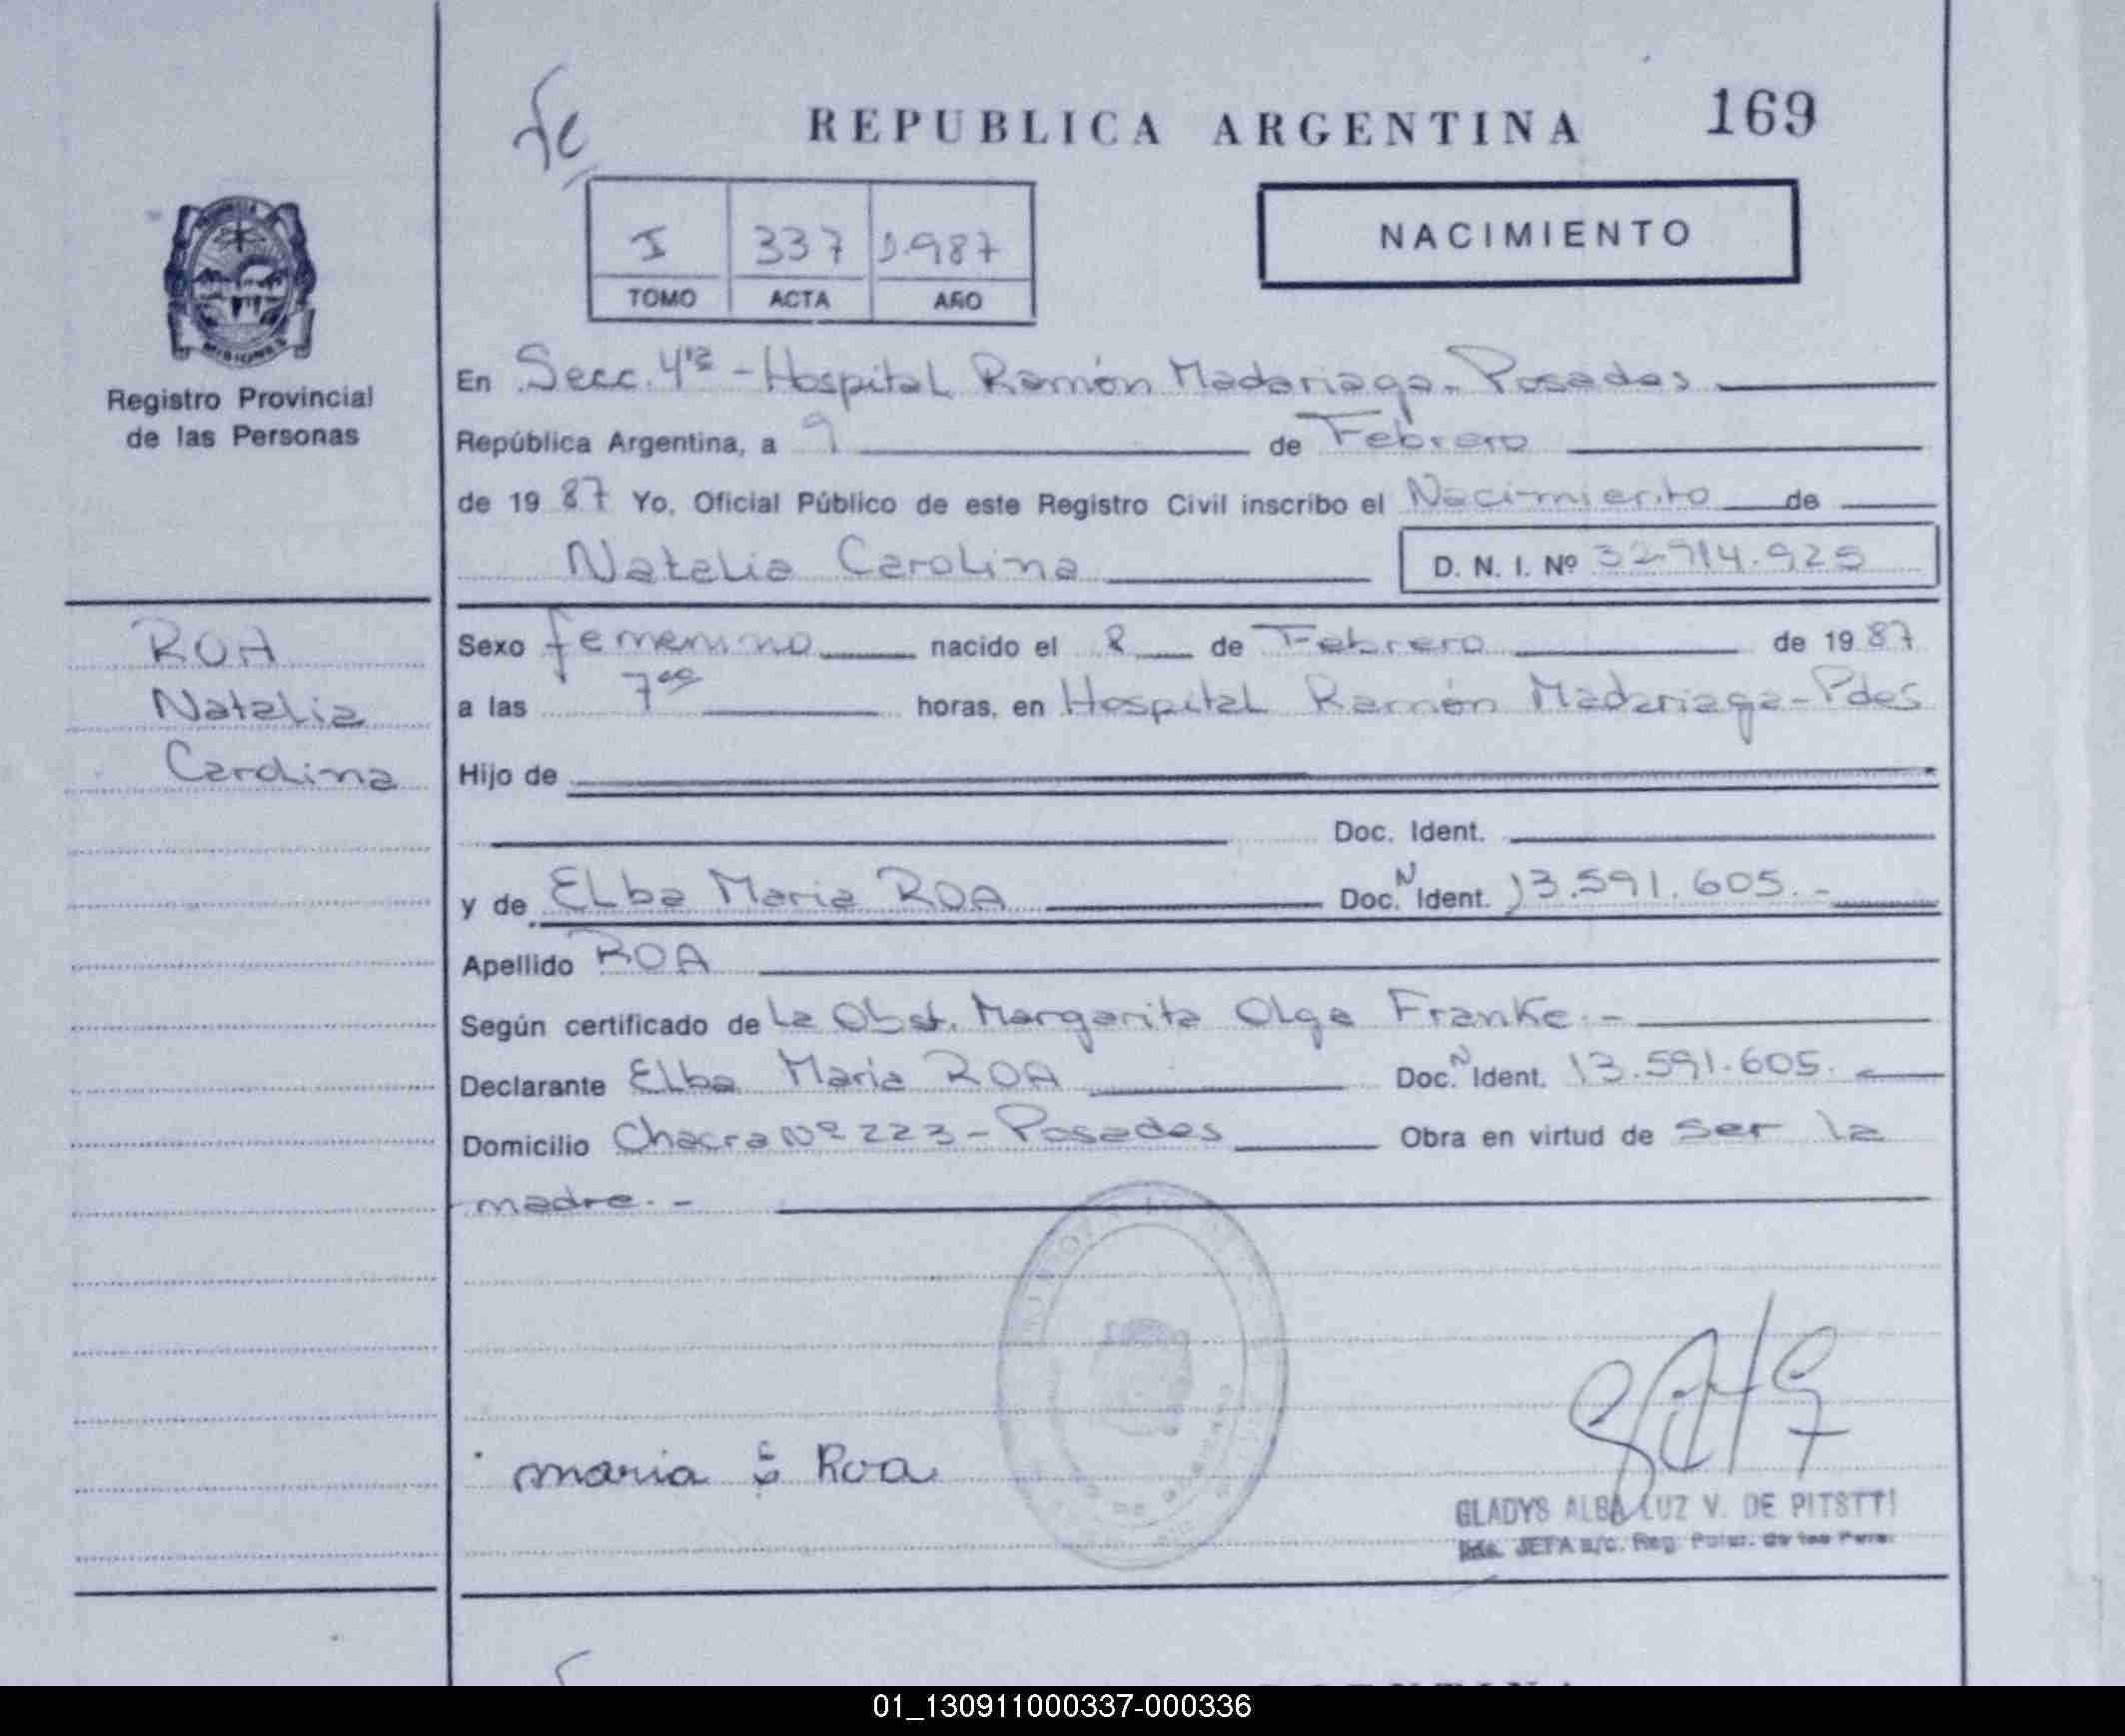 REPUBLICA ARGENTINA 169
I 337 1.987
TOMO ACTA AÑO
NACIMIENTO
MISIONES
Registro Provincial
de las Personas
ROA
Natalia
Carolina
En Secc. 4ta - Hospital Ramón Madariaga - Posadas
República Argentina, a 9 de Febrero
de 1987 Yo, Oficial Público de este Registro Civil inscribo el Nacimiento de
Natalia Carolina D. N. I. Nº 32.914.925
Sexo femenino nacido el 8 de Febrero de 1987
a las 7 horas, en Hospital Ramón Madariaga - Pdas
Hijo de
Doc. Ident.
y de Elba Maria ROA Doc. N Ident. 13.591.605.-
Apellido ROA
Según certificado de La Obst. Margarita Olga Franke.-
Declarante Elba Maria ROA Doc. N Ident. 13.591.605.
Domicilio Chacra Nº 223 - Posadas Obra en virtud de ser la
madre.-
maria E Roa
GLADYS ALBA LUZ V. DE
JEFA a/c. Reg. de las Pers.
01_130911000337-000336